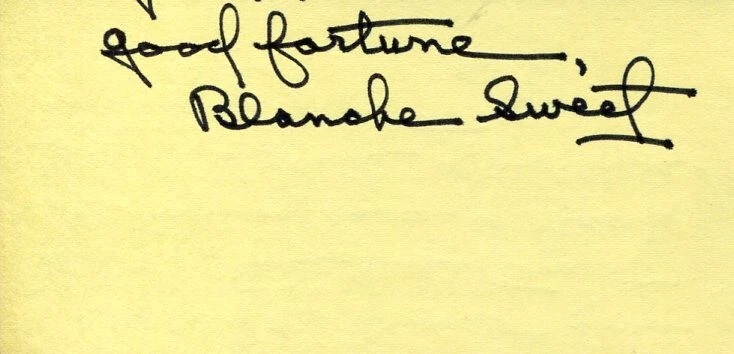 good fortune,
Blanche Sweet